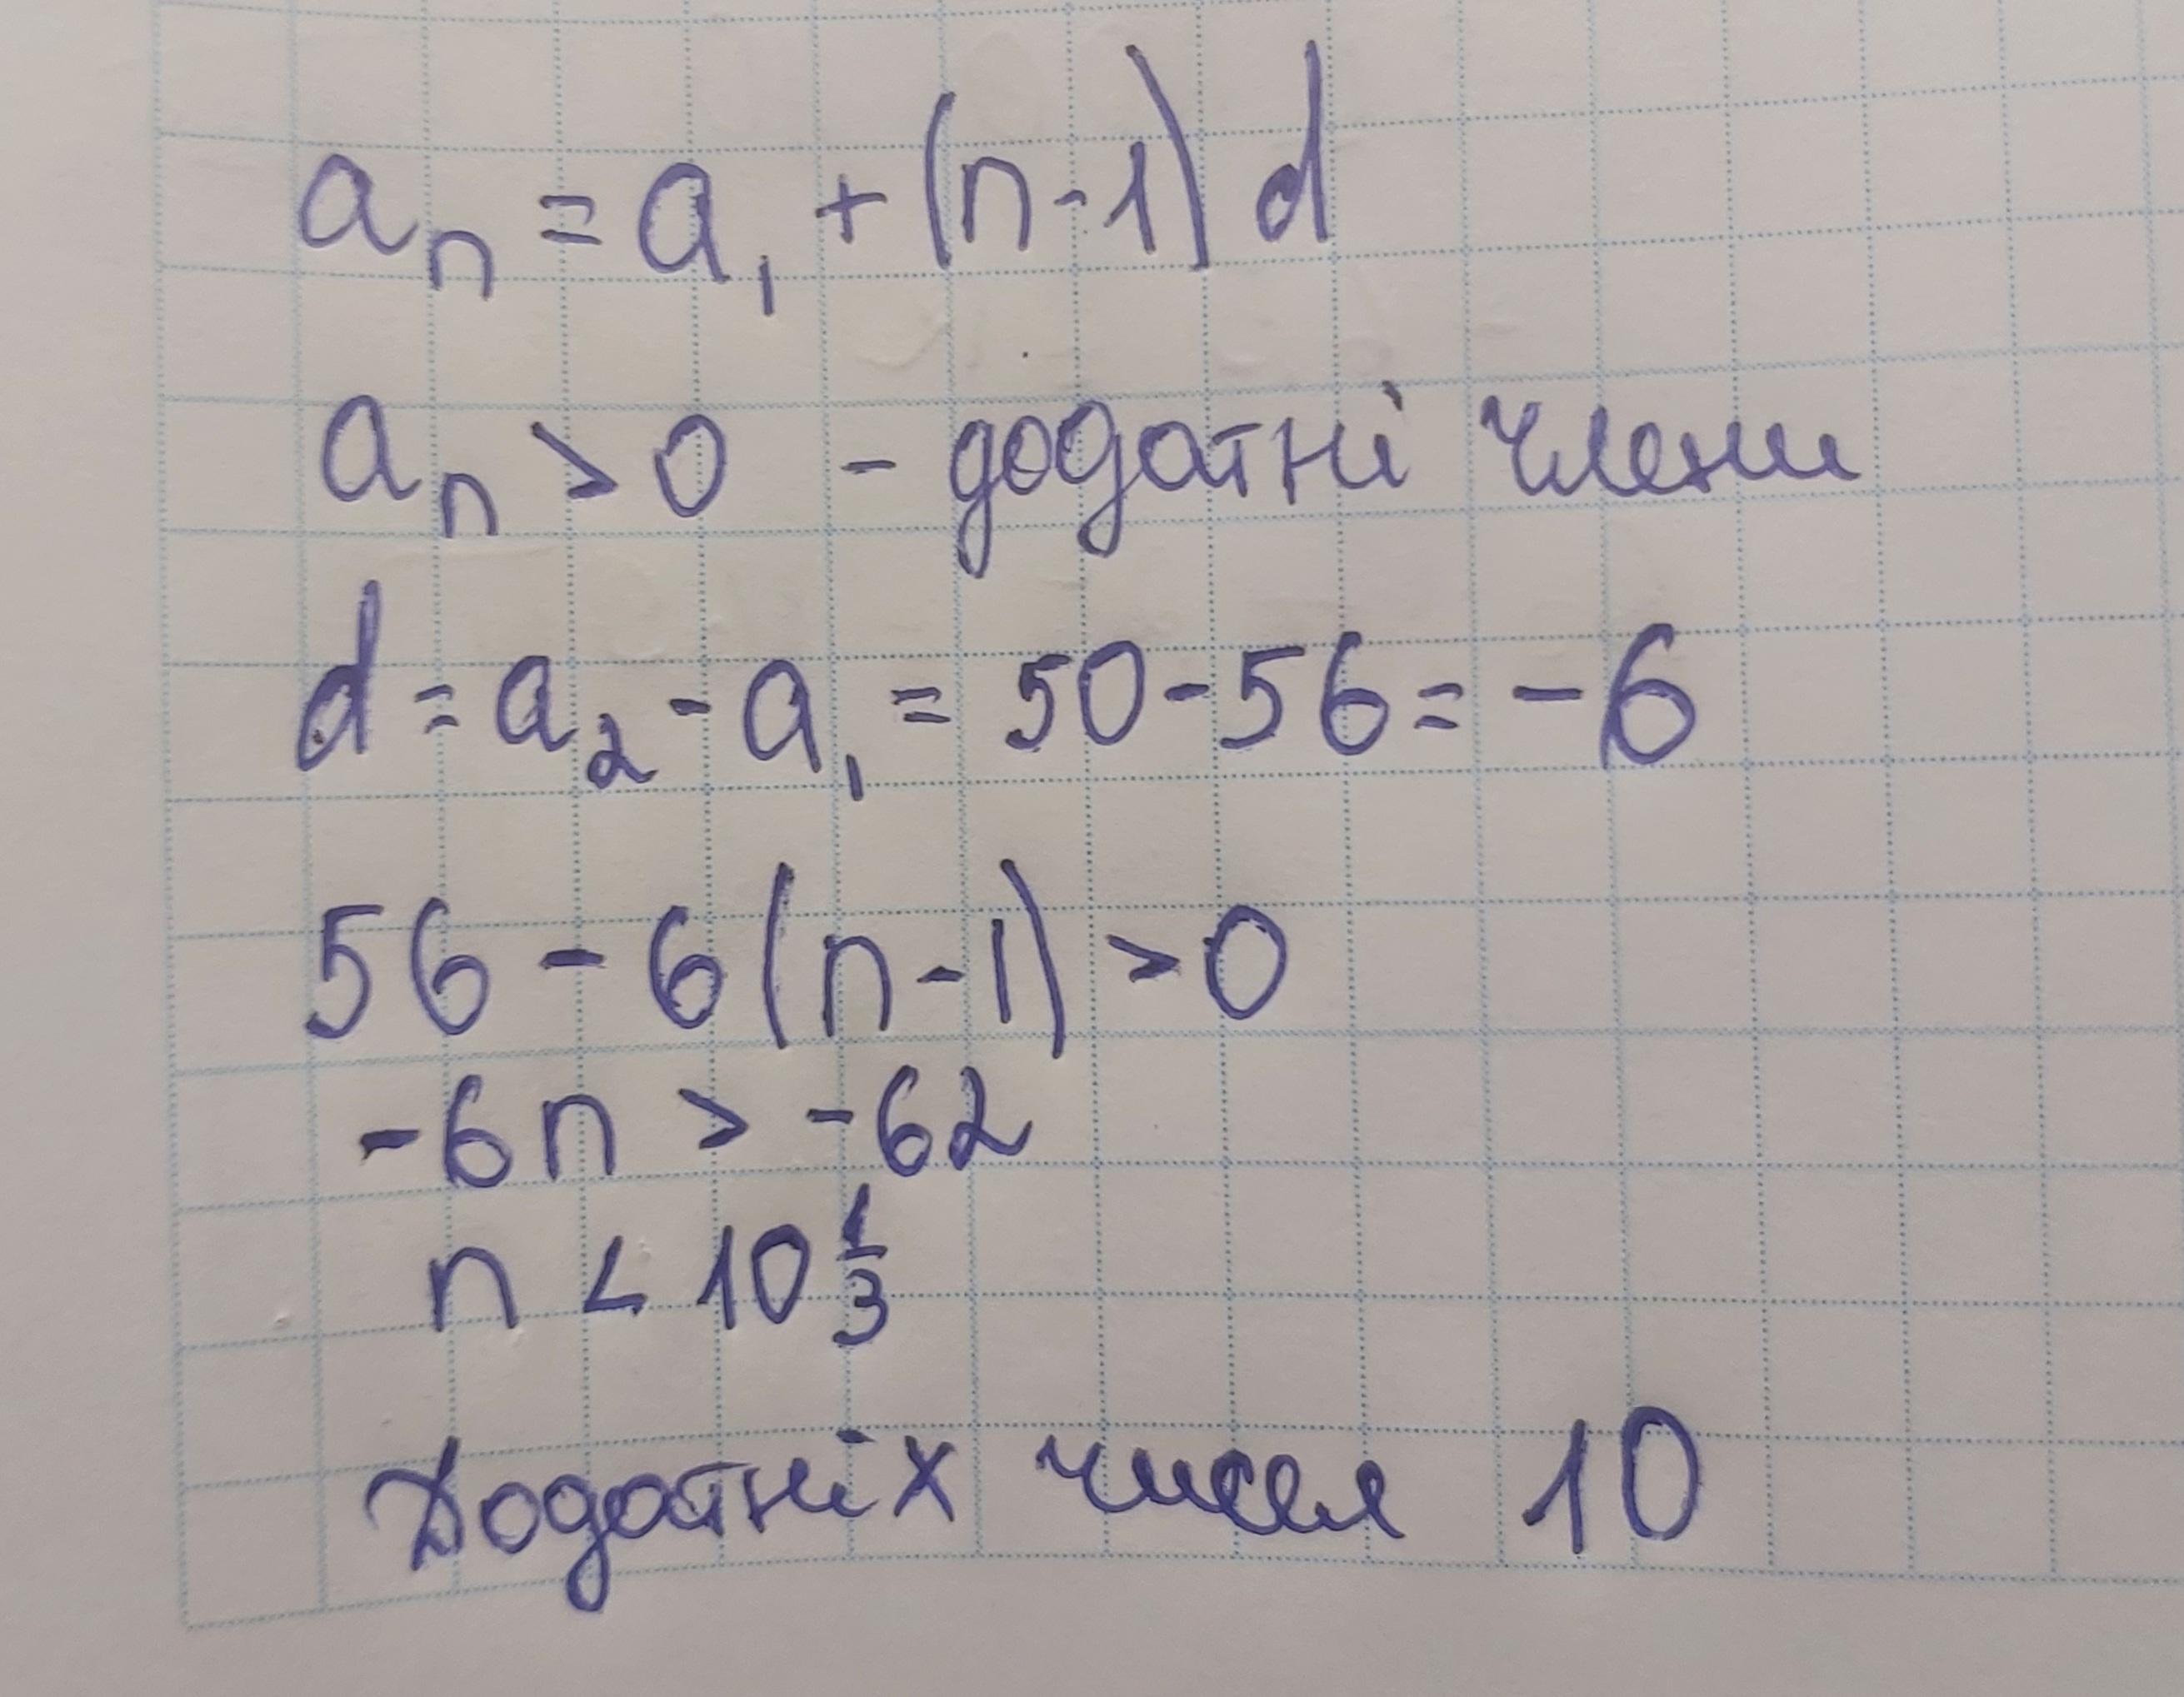 aₙ = a₁ + (n-1) d
aₙ > 0 - додатні члени
d = a₂ - a₁ = 50 - 56 = -6
56 - 6(n-1) > 0
-6n > -62
n < 10 1/3
Додатніх чисел 10